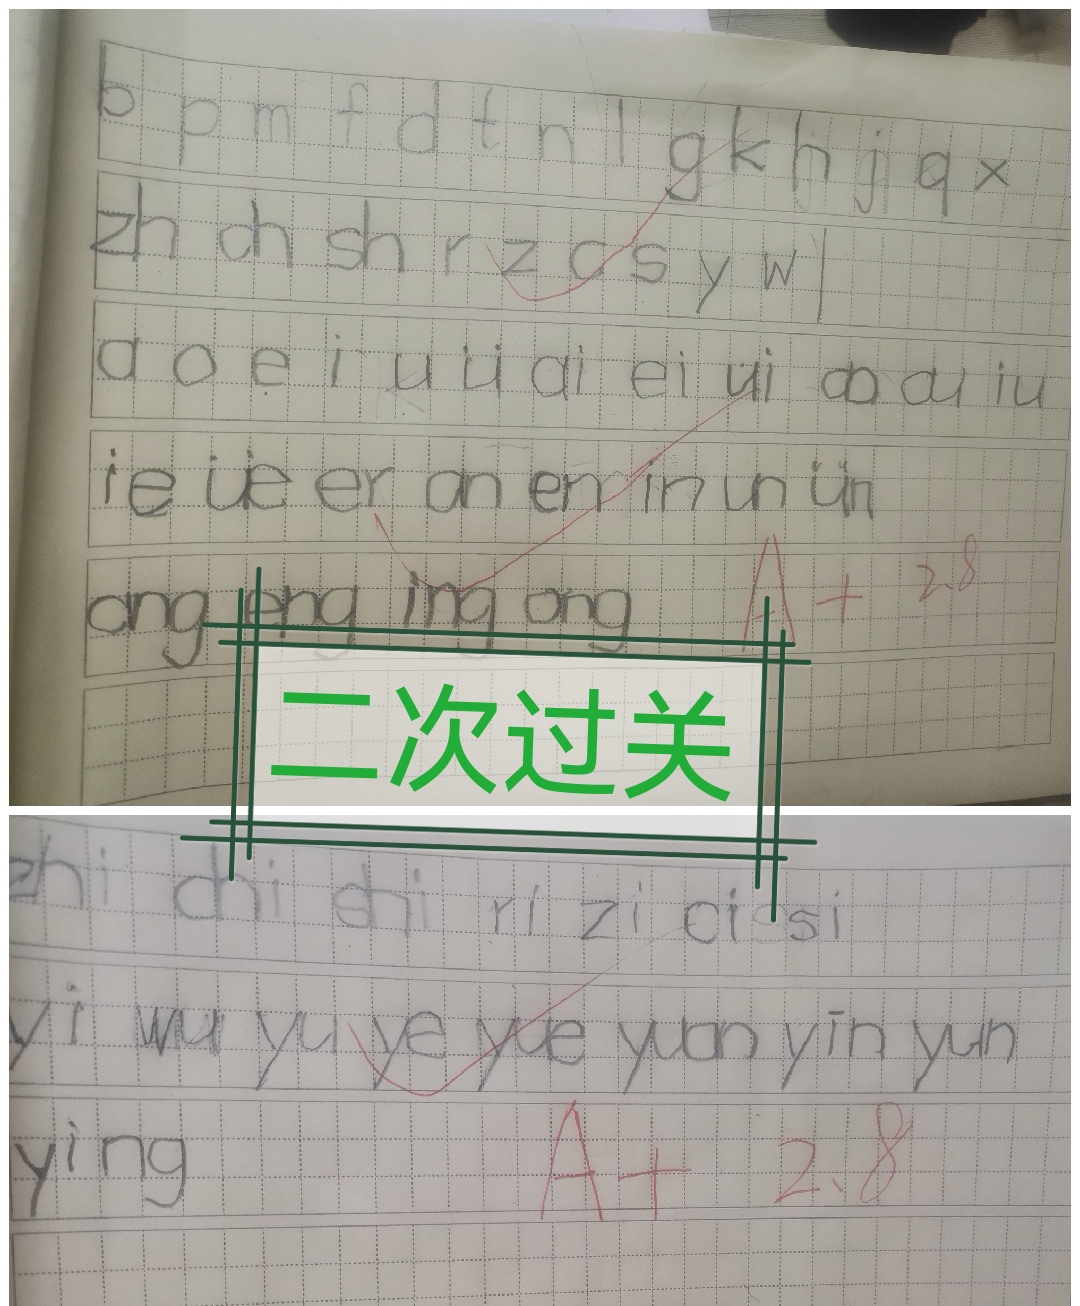 b p m f d t n l g k h j q x
zh ch sh r z c s y w
a o e i u ü ai ei ui ao ou iu
ie üe er an en in un ün
ang eng ing ong
A+ 2.8
二次过关
zhi chi shi ri zi ci si
yi wu yu ye yue yuan yin yun
ying
A+ 2.8